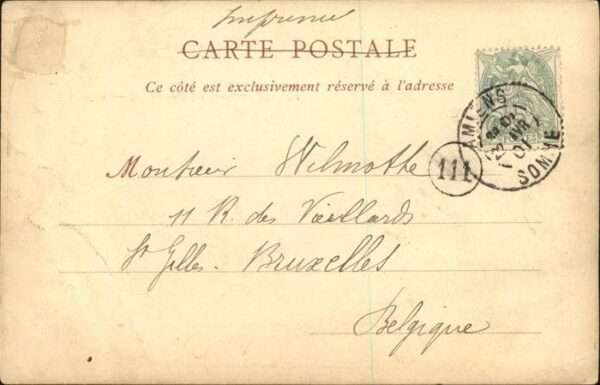 Imprimé
CARTE POSTALE
Ce côté est exclusivement réservé à l'adresse
AMIENS
AVR
01
SOMME
111
Monsieur Wilmotte
11 R. des Vieillards
St Gilles - Bruxelles
Belgique